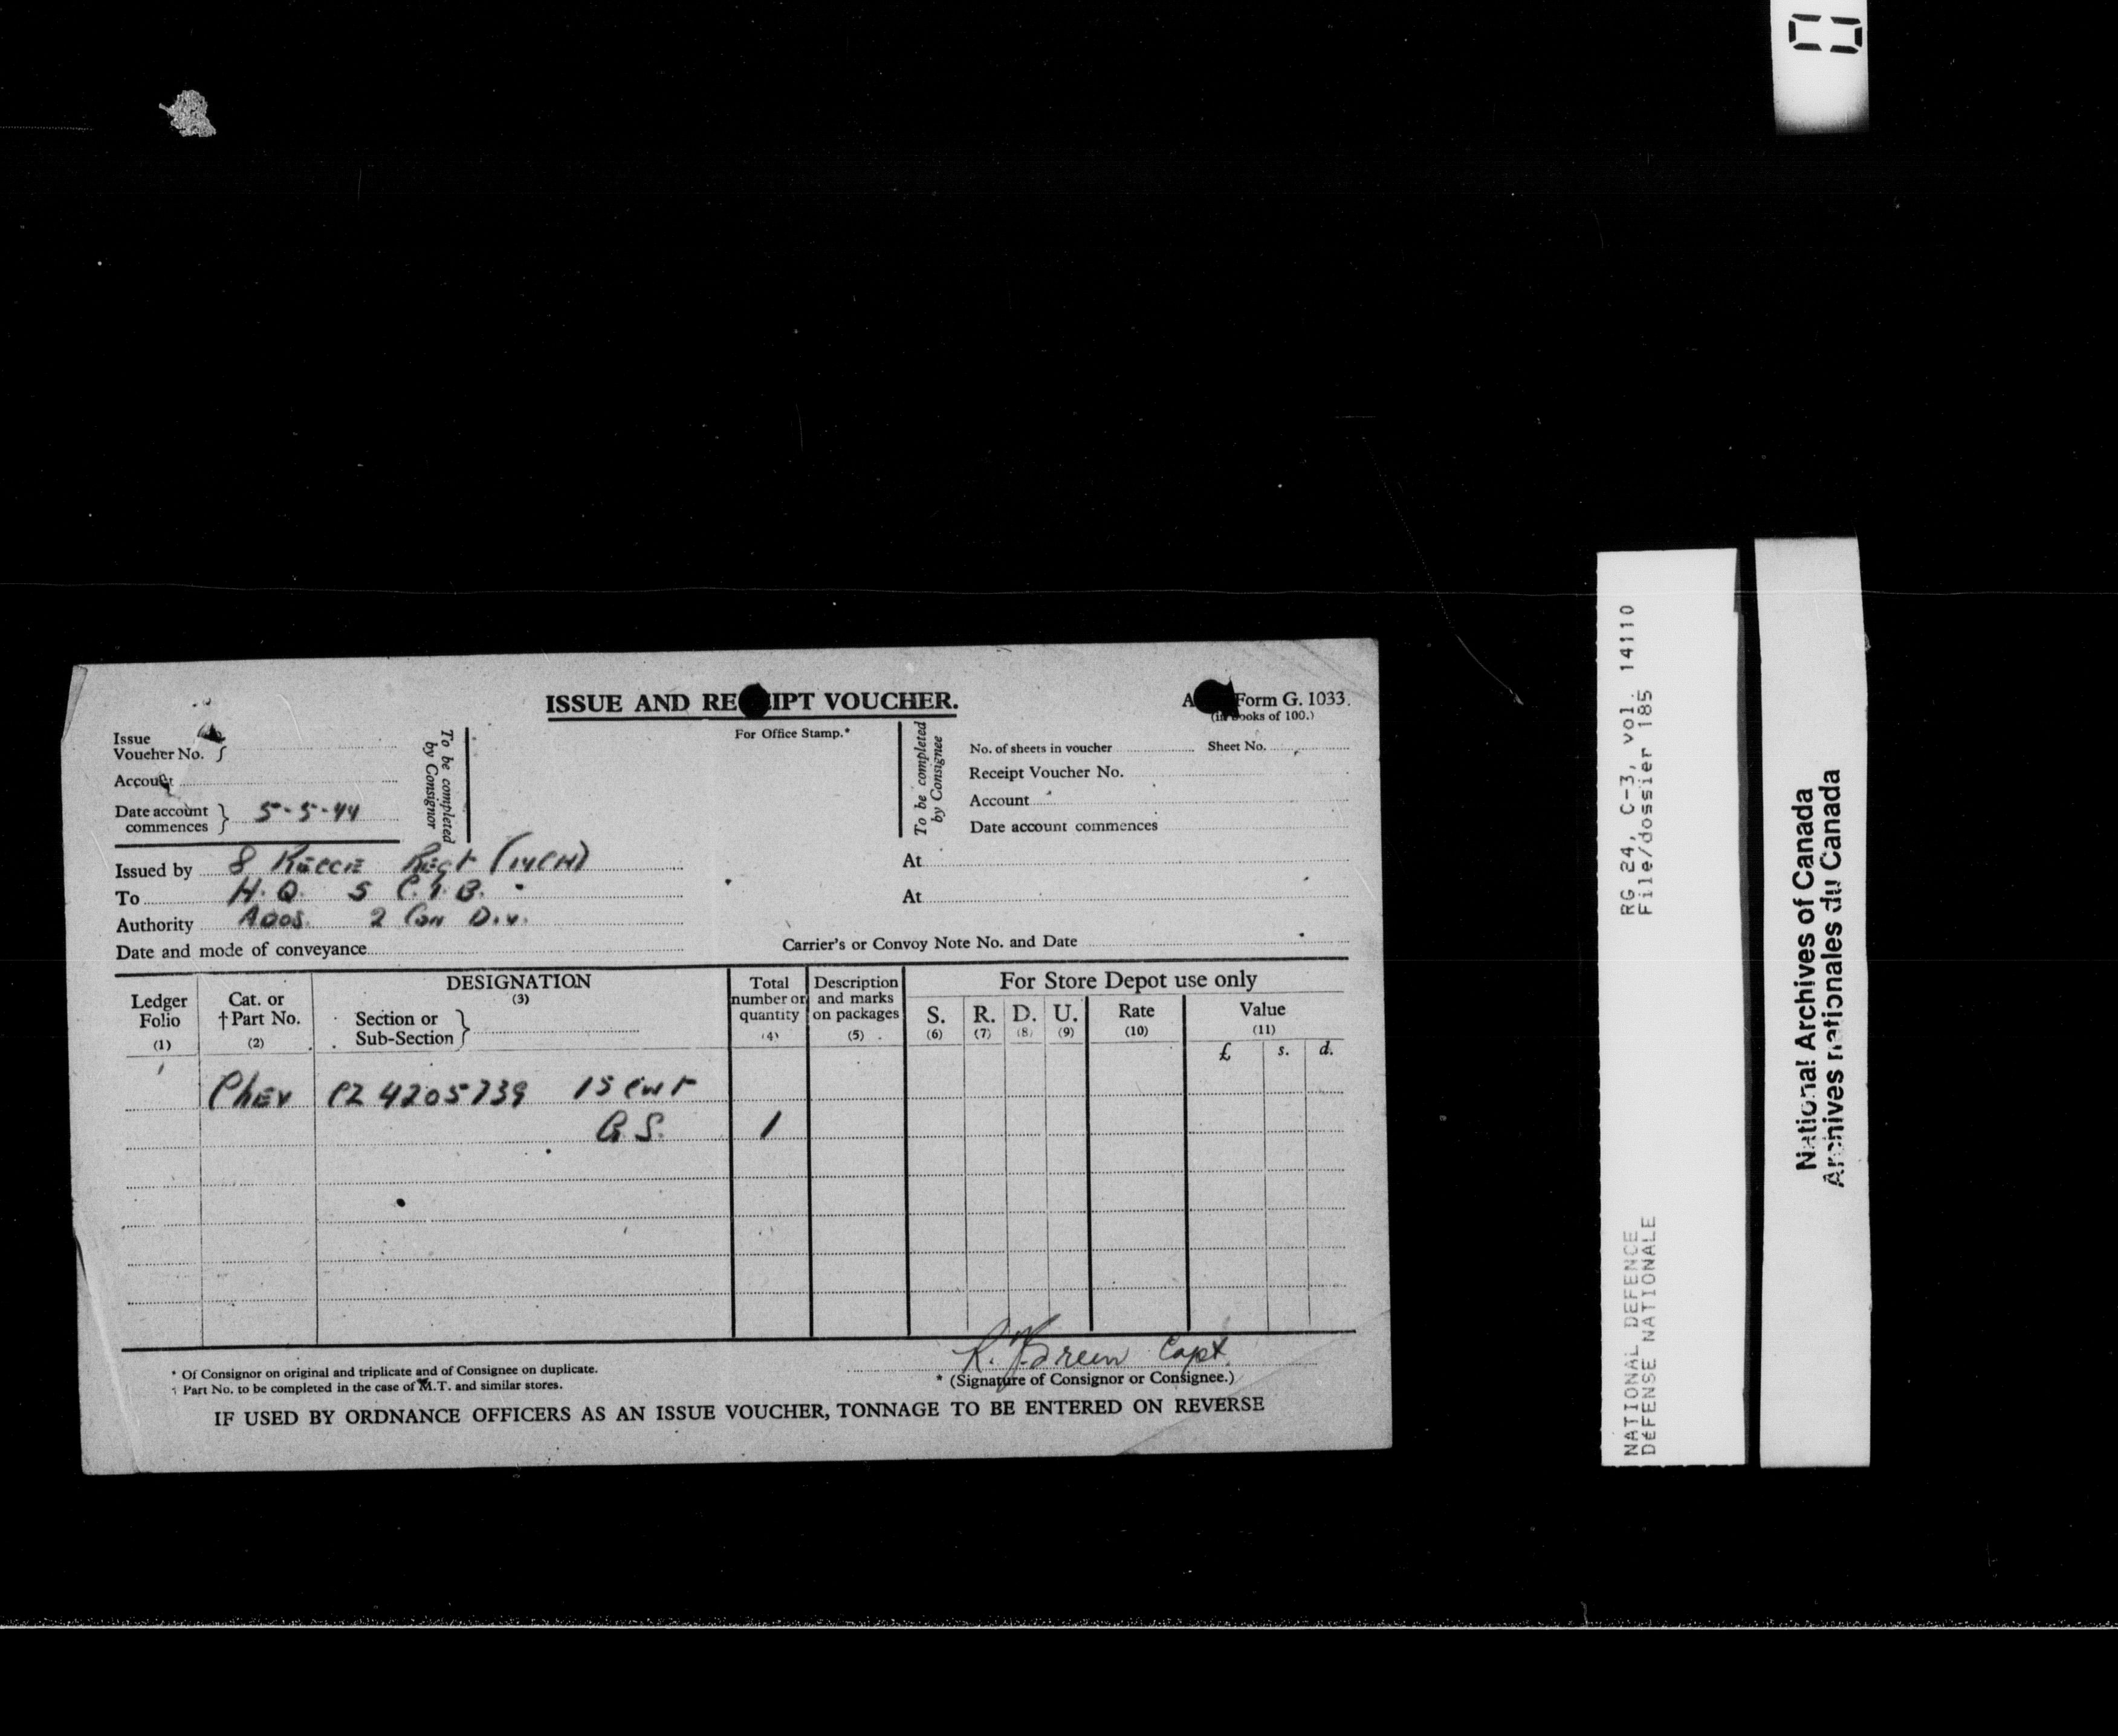 ISSUE AND RE IPT VOUCHER.
A Form G. 1033.
(in books of 100.)
Issue
Voucher No.
Account
Date account
commences 5-5-44
To be completed
by Consignor
For Office Stamp.*
To be completed
by Consignee
No. of sheets in voucher Sheet No.
Receipt Voucher No.
Account
Date account commences
Issued by 8 Recce Regt (14CH) At
To H.Q. 5 C.I.B. At
Authority ADOS 2 Can Div.
Date and mode of conveyance Carrier's or Convoy Note No. and Date
Ledger
Folio
(1)
Cat. or
†Part No.
(2)
DESIGNATION
(3)
Section or
Sub-Section
Total
number or
quantity
(4)
Description
and marks
on packages
(5)
For Store Depot use only
S.
(6)
R.
(7)
D.
(8)
U.
(9)
Rate
(10)
Value
(11)
£ s. d.
Chev CZ 4205739 15 cwt
G.S. 1
Capt.
* Of Consignor on original and triplicate and of Consignee on duplicate.
† Part No. to be completed in the case of M.T. and similar stores.
* (Signature of Consignor or Consignee.)
IF USED BY ORDNANCE OFFICERS AS AN ISSUE VOUCHER, TONNAGE TO BE ENTERED ON REVERSE
RG 24, C-3, vol. 14110
File/dossier 185
NATIONAL DEFENCE
DEFENSE NATIONALE
National Archives of Canada
Archives nationales du Canada